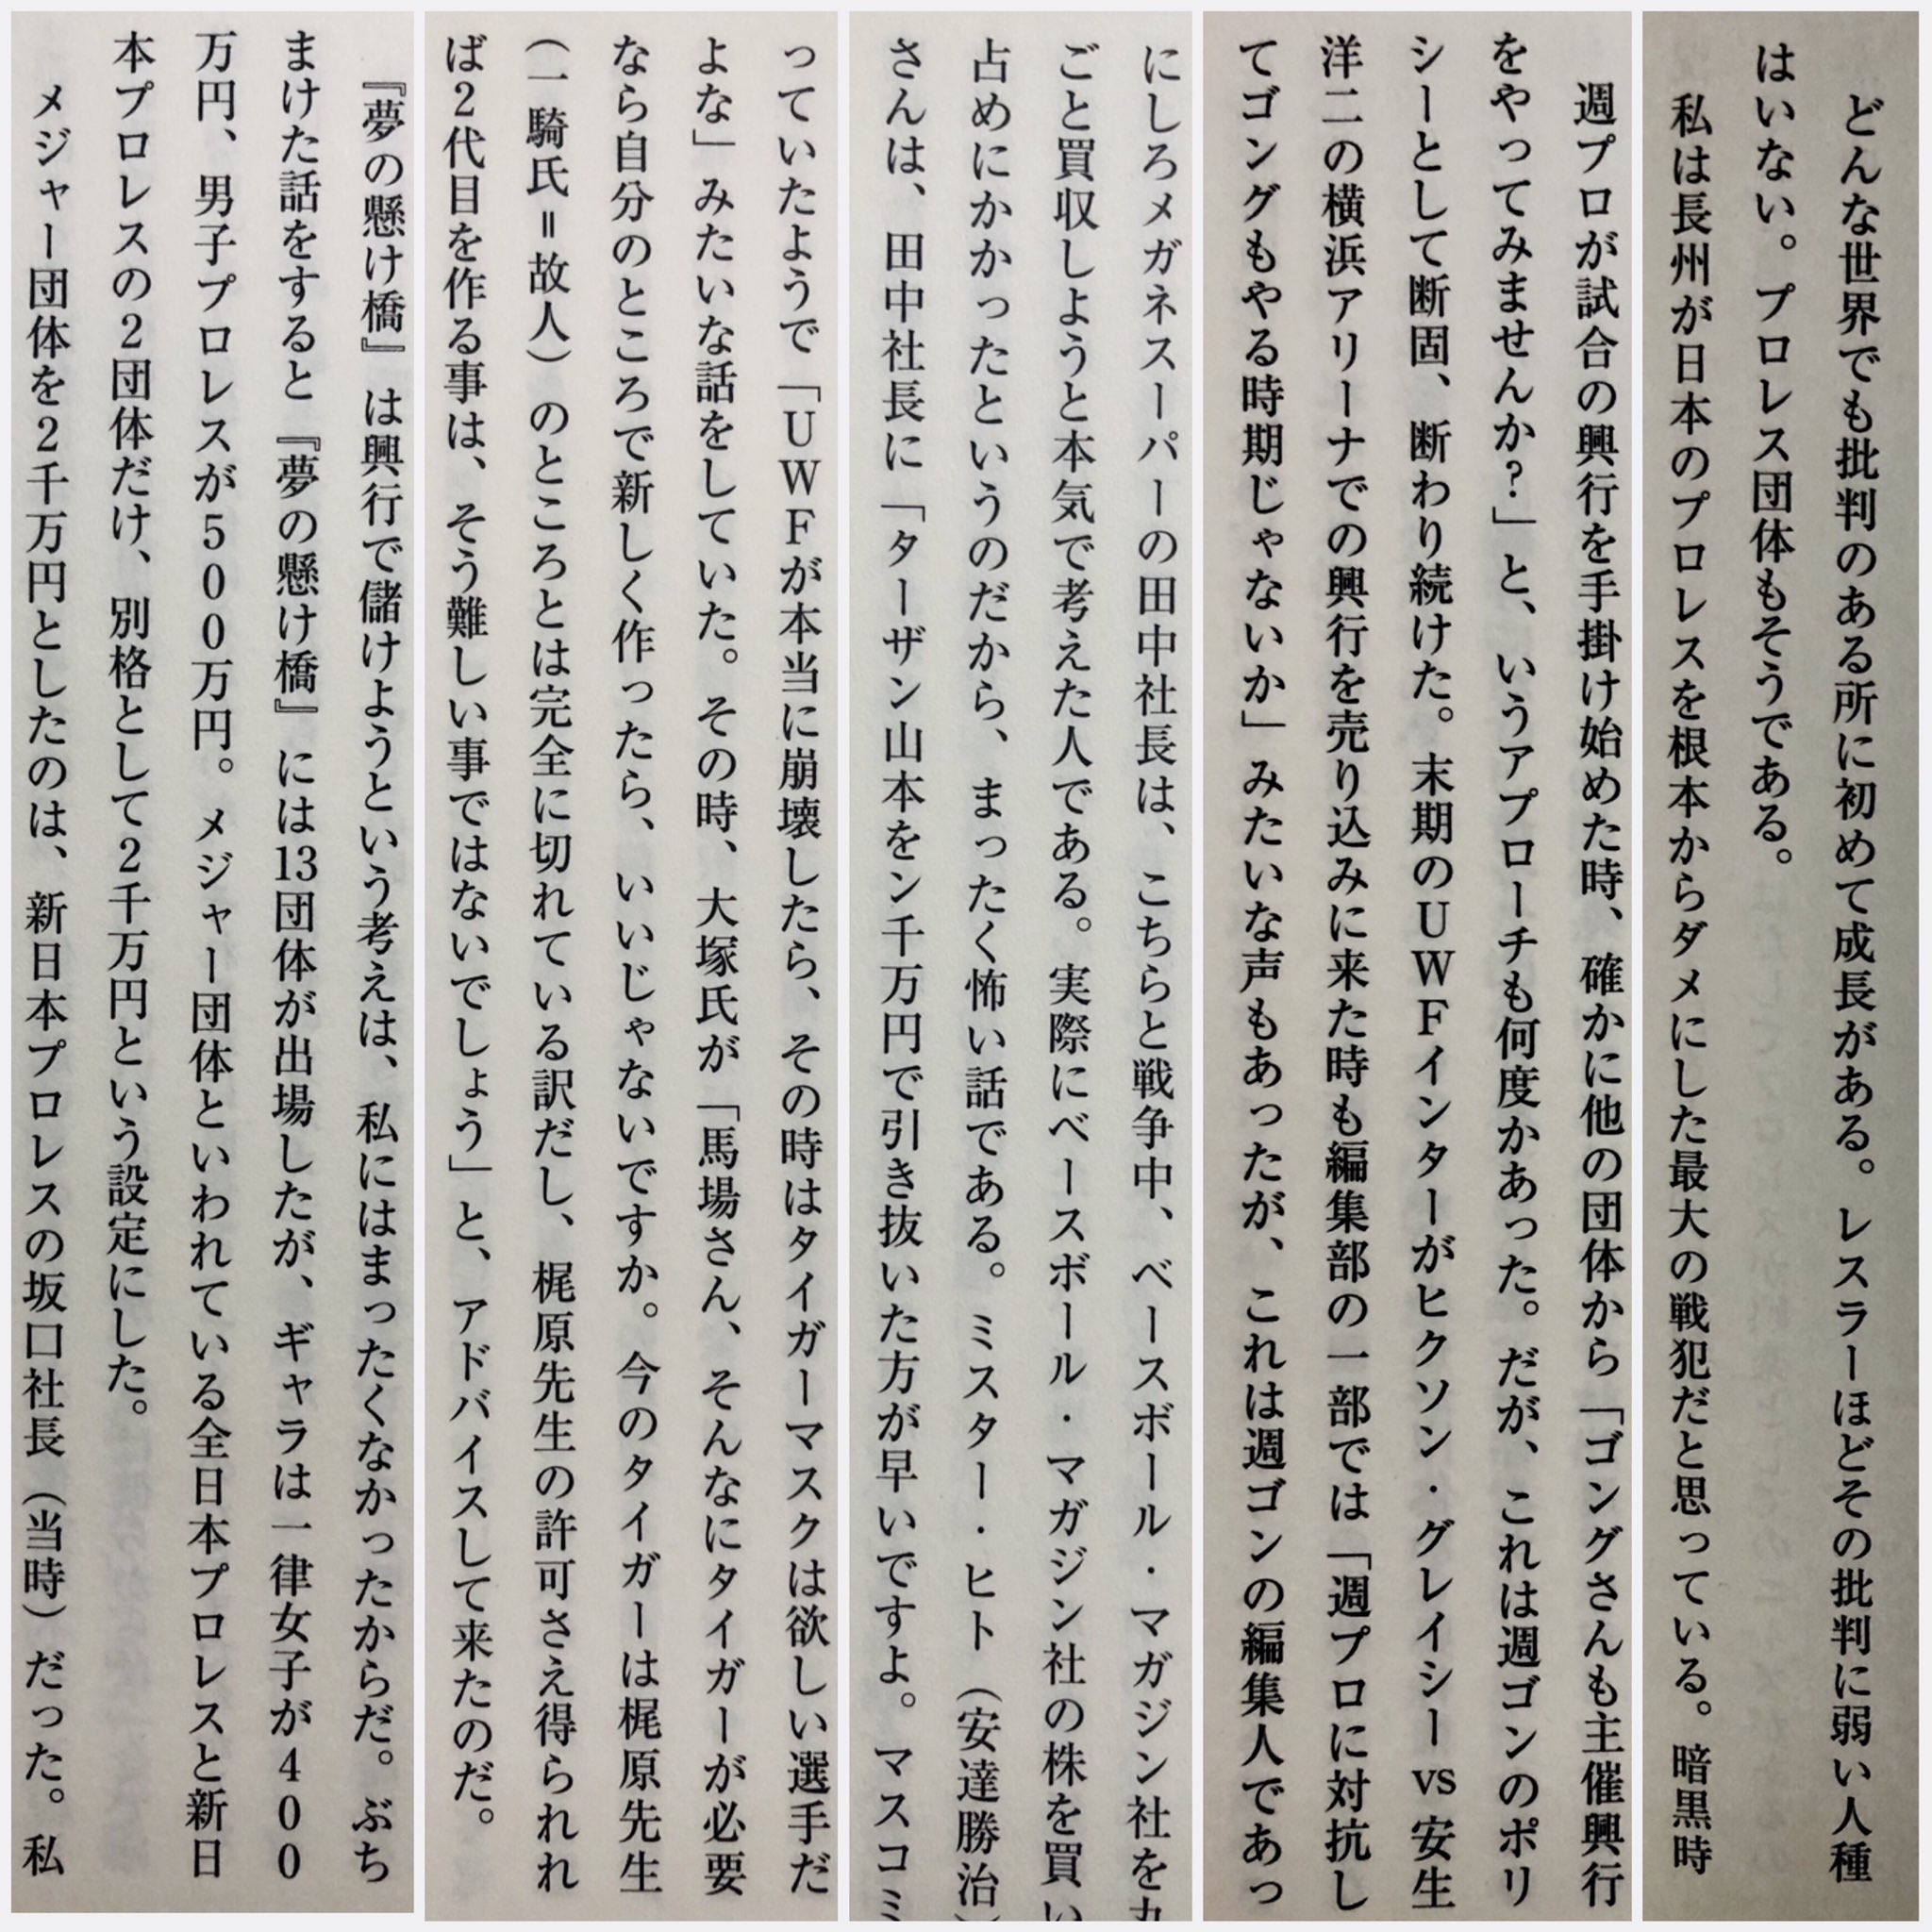 どんな世界でも批判のある所に初めて成長がある。レスラーほどその批判に弱い人種
はいない。プロレス団体もそうである。
私は長州が日本のプロレスを根本からダメにした最大の戦犯だと思っている。暗黒時
週プロが試合の興行を手掛け始めた時、確かに他の団体から「ゴングさんも主催興行
をやってみませんか?」と、いうアプローチも何度かあった。だが、これは週ゴンのポリ
シーとして断固、断わり続けた。末期のUWFインターがヒクソン・グレイシーvs安生
洋二の横浜アリーナでの興行を売り込みに来た時も編集部の一部では「週プロに対抗し
てゴングもやる時期じゃないか」みたいな声もあったが、これは週ゴンの編集人であっ
にしろメガネスーパーの田中社長は、こちらと戦争中、ベースボール・マガジン社を丸
ごと買収しようと本気で考えた人である。実際にベースボール・マガジン社の株を買い
占めにかかったというのだから、まったく怖い話である。ミスター・ヒト(安達勝治)
さんは、田中社長に「ターザン山本をン千万円で引き抜いた方が早いですよ。マスコミ
っていたようで「UWFが本当に崩壊したら、その時はタイガーマスクは欲しい選手だ
よな」みたいな話をしていた。その時、大塚氏が「馬場さん、そんなにタイガーが必要
なら自分のところで新しく作ったら、いいじゃないですか。今のタイガーは梶原先生
(一騎氏=故人)のところとは完全に切れている訳だし、梶原先生の許可さえ得られれ
ば2代目を作る事は、そう難しい事ではないでしょう」と、アドバイスして来たのだ。
『夢の懸け橋』は興行で儲けようという考えは、私にはまったくなかったからだ。ぶち
まけた話をすると『夢の懸け橋』には13団体が出場したが、ギャラは一律女子が400
万円、男子プロレスが500万円。メジャー団体といわれている全日本プロレスと新日
本プロレスの2団体だけ、別格として2千万円という設定にした。
メジャー団体を2千万円としたのは、新日本プロレスの坂口社長(当時)だった。私